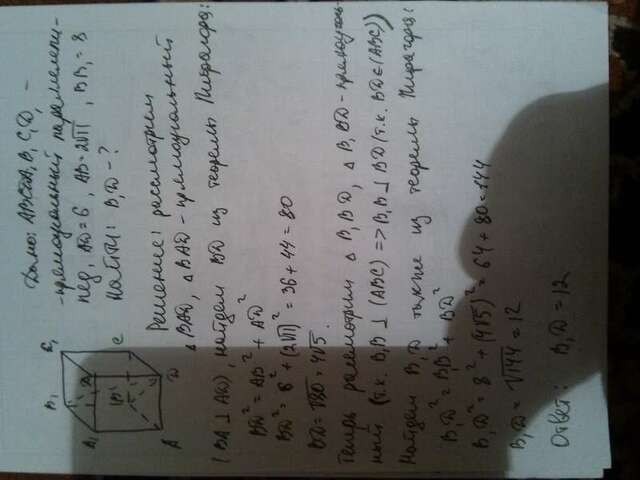 Дано: ABCDA₁B₁C₁D₁ -
-прямоугольный параллелепи-
пед, AD=6, AB=2√11, BB₁=8
Найти: B₁D-?
B₁
C₁
A₁
D₁
B
C
A
D
Решение: рассмотрим
△BAD, △BAD-прямоугольный
(BA⊥AD), найдем BD из теоремы Пифагора:
BD²=AB²+AD²
BD²=6²+(2√11)²=36+44=80
BD=√80=4√5.
Теперь рассмотрим △B₁BD, △B₁BD-прямоуголь-
ный (т.к. B₁B⊥(ABC)=>B₁B⊥BD(т.к. BD∈(ABC))
Найдем B₁D также из теоремы Пифагора:
B₁D²=B₁B²+BD²
B₁D²=8²+(4√5)²=64+80=144
B₁D=√144=12
Ответ: B₁D=12